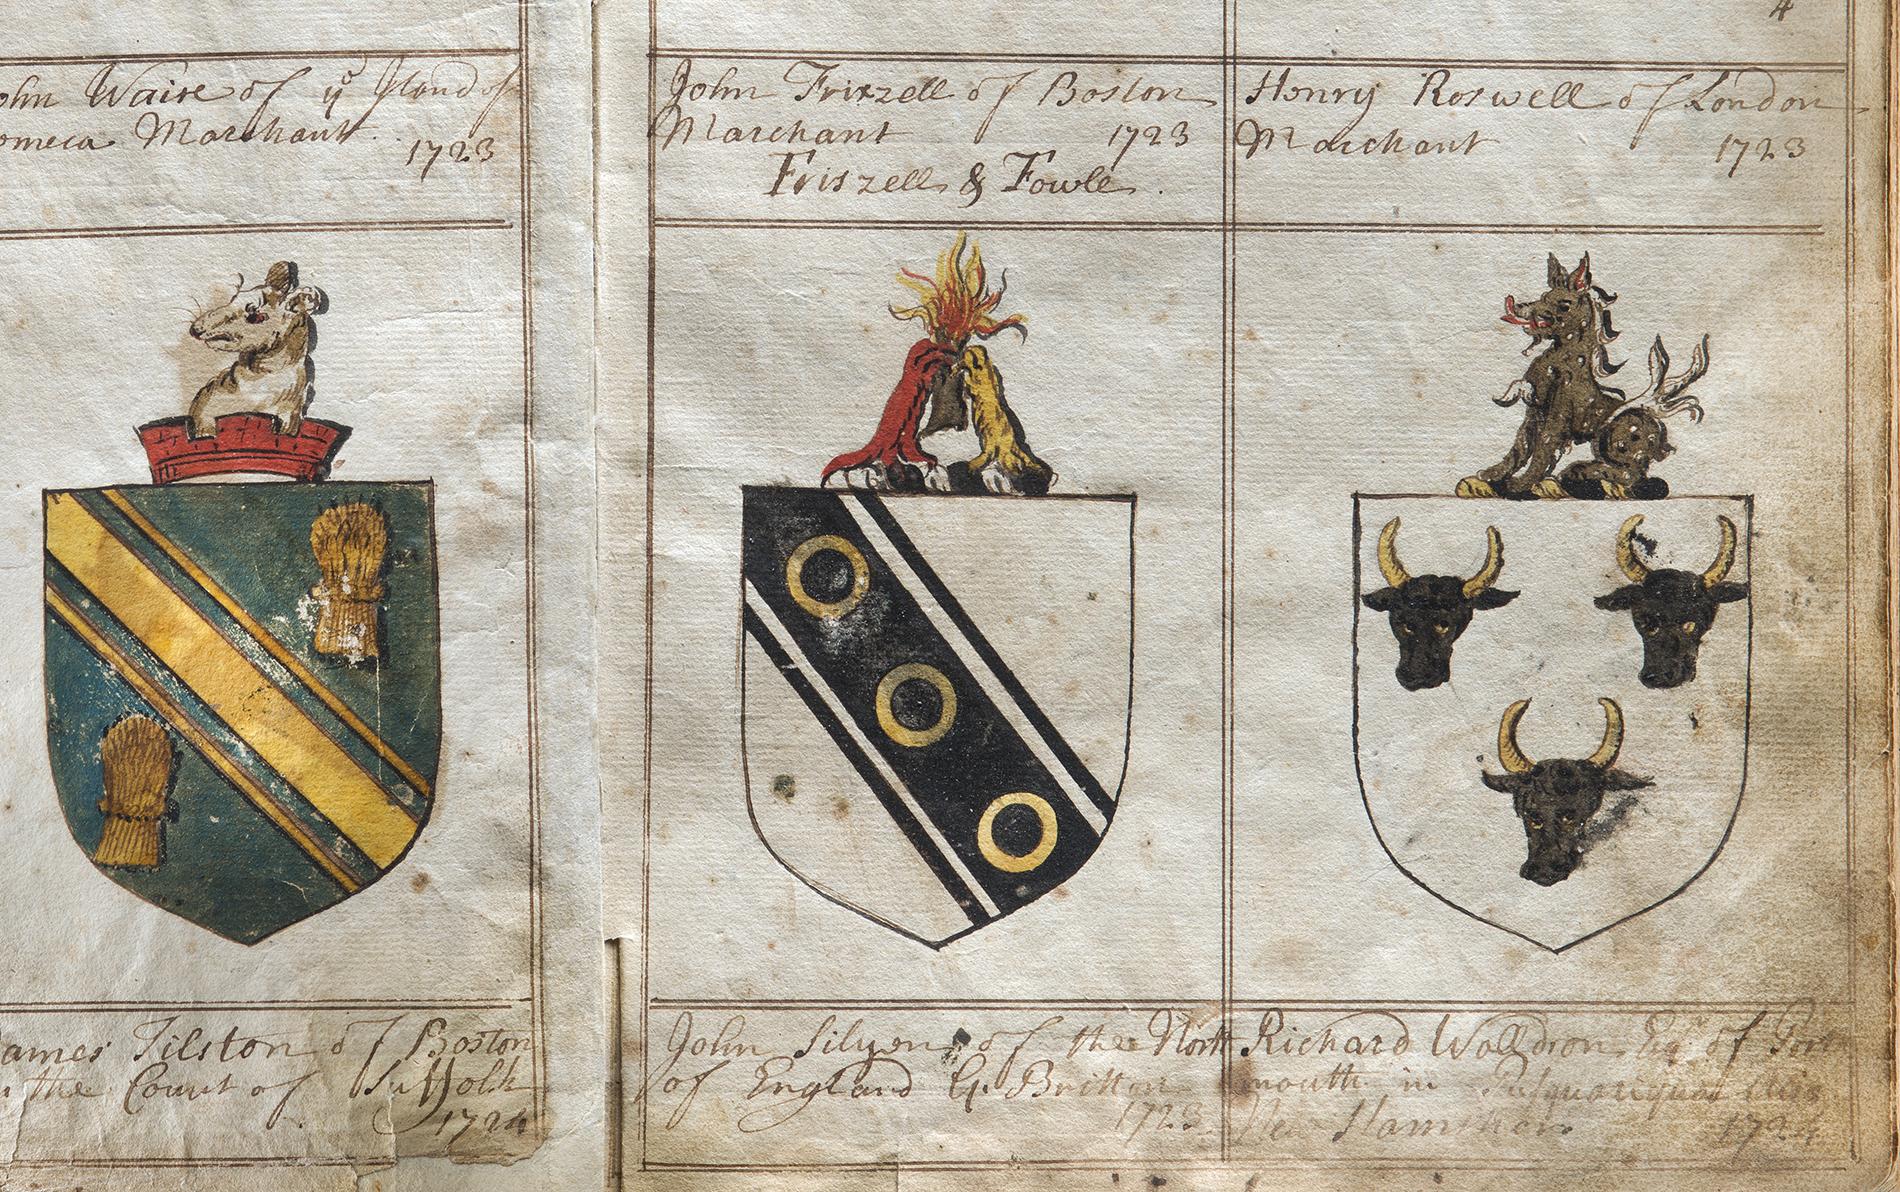 4
ohn Waire of yͤ Iland of
omeca Marchant 1723
John Frizzell of Boston
Marchant 1723
Friszell & Fowle.
Henry Roswell of London
Marchant 1723
ames Tilston of Boston
the Count of Suffolk
1724
John Silyen of the North
of England Gr Britton
1723
Richard Walldron Esqr of Port
mouth in
New Hamshr
1724